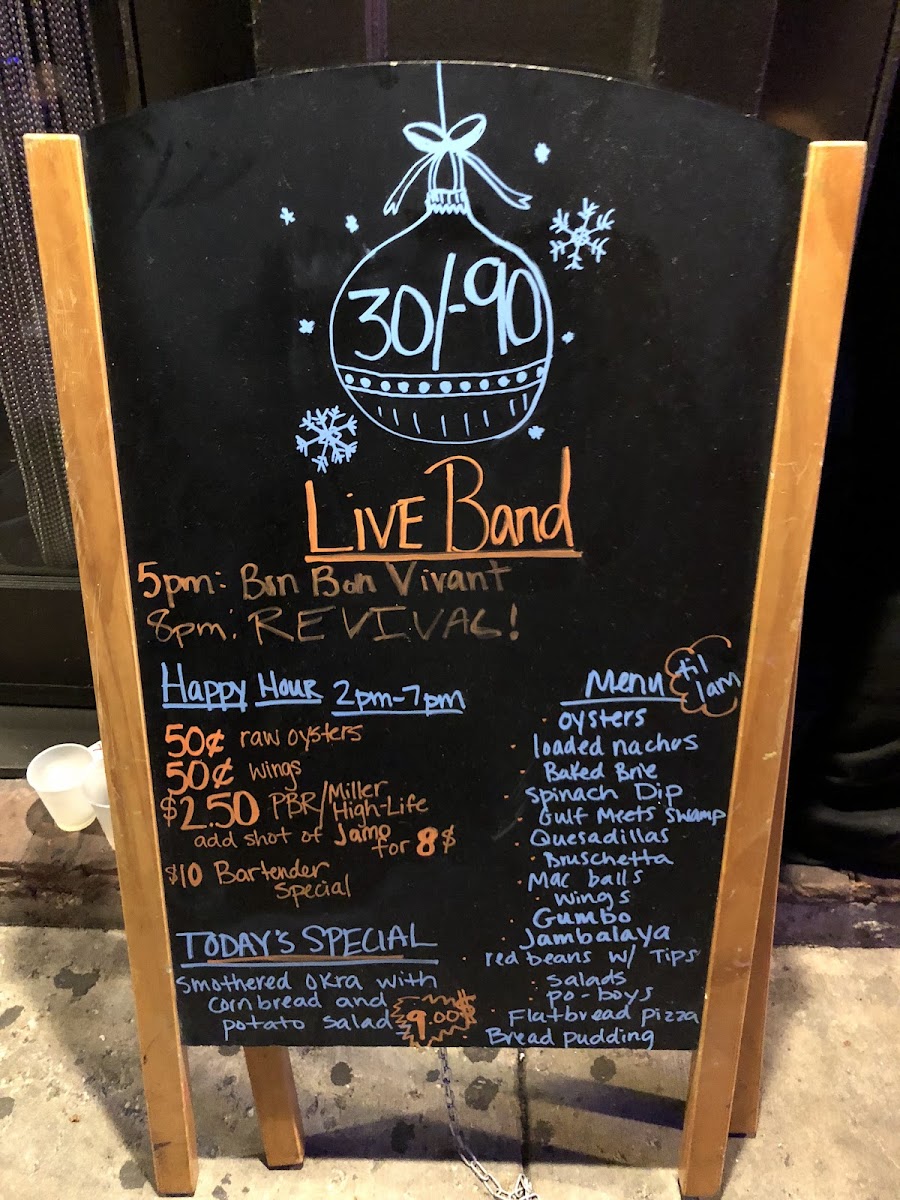 30/-90
LIVE Band
5pm: Bon Bon Vivant
8pm: REVIVAL!
Happy Hour 2pm-7pm
50¢ raw oysters
50¢ wings
$2.50 PBR/Miller High-Life
add shot of Jamo for 8$
$10 Bartender Special
TODAY'S SPECIAL
smothered okra with
cornbread and
potato salad 9.00$
Menu til 1am
· oysters
· loaded nachos
· Baked Brie
· Spinach Dip
· Gulf Meets Swamp
· Quesadillas
· Bruschetta
· Mac balls
· wings
· Gumbo
· Jambalaya
· red beans w/ Tips
· salads
· po-boys
· Flatbread pizza
· Bread pudding